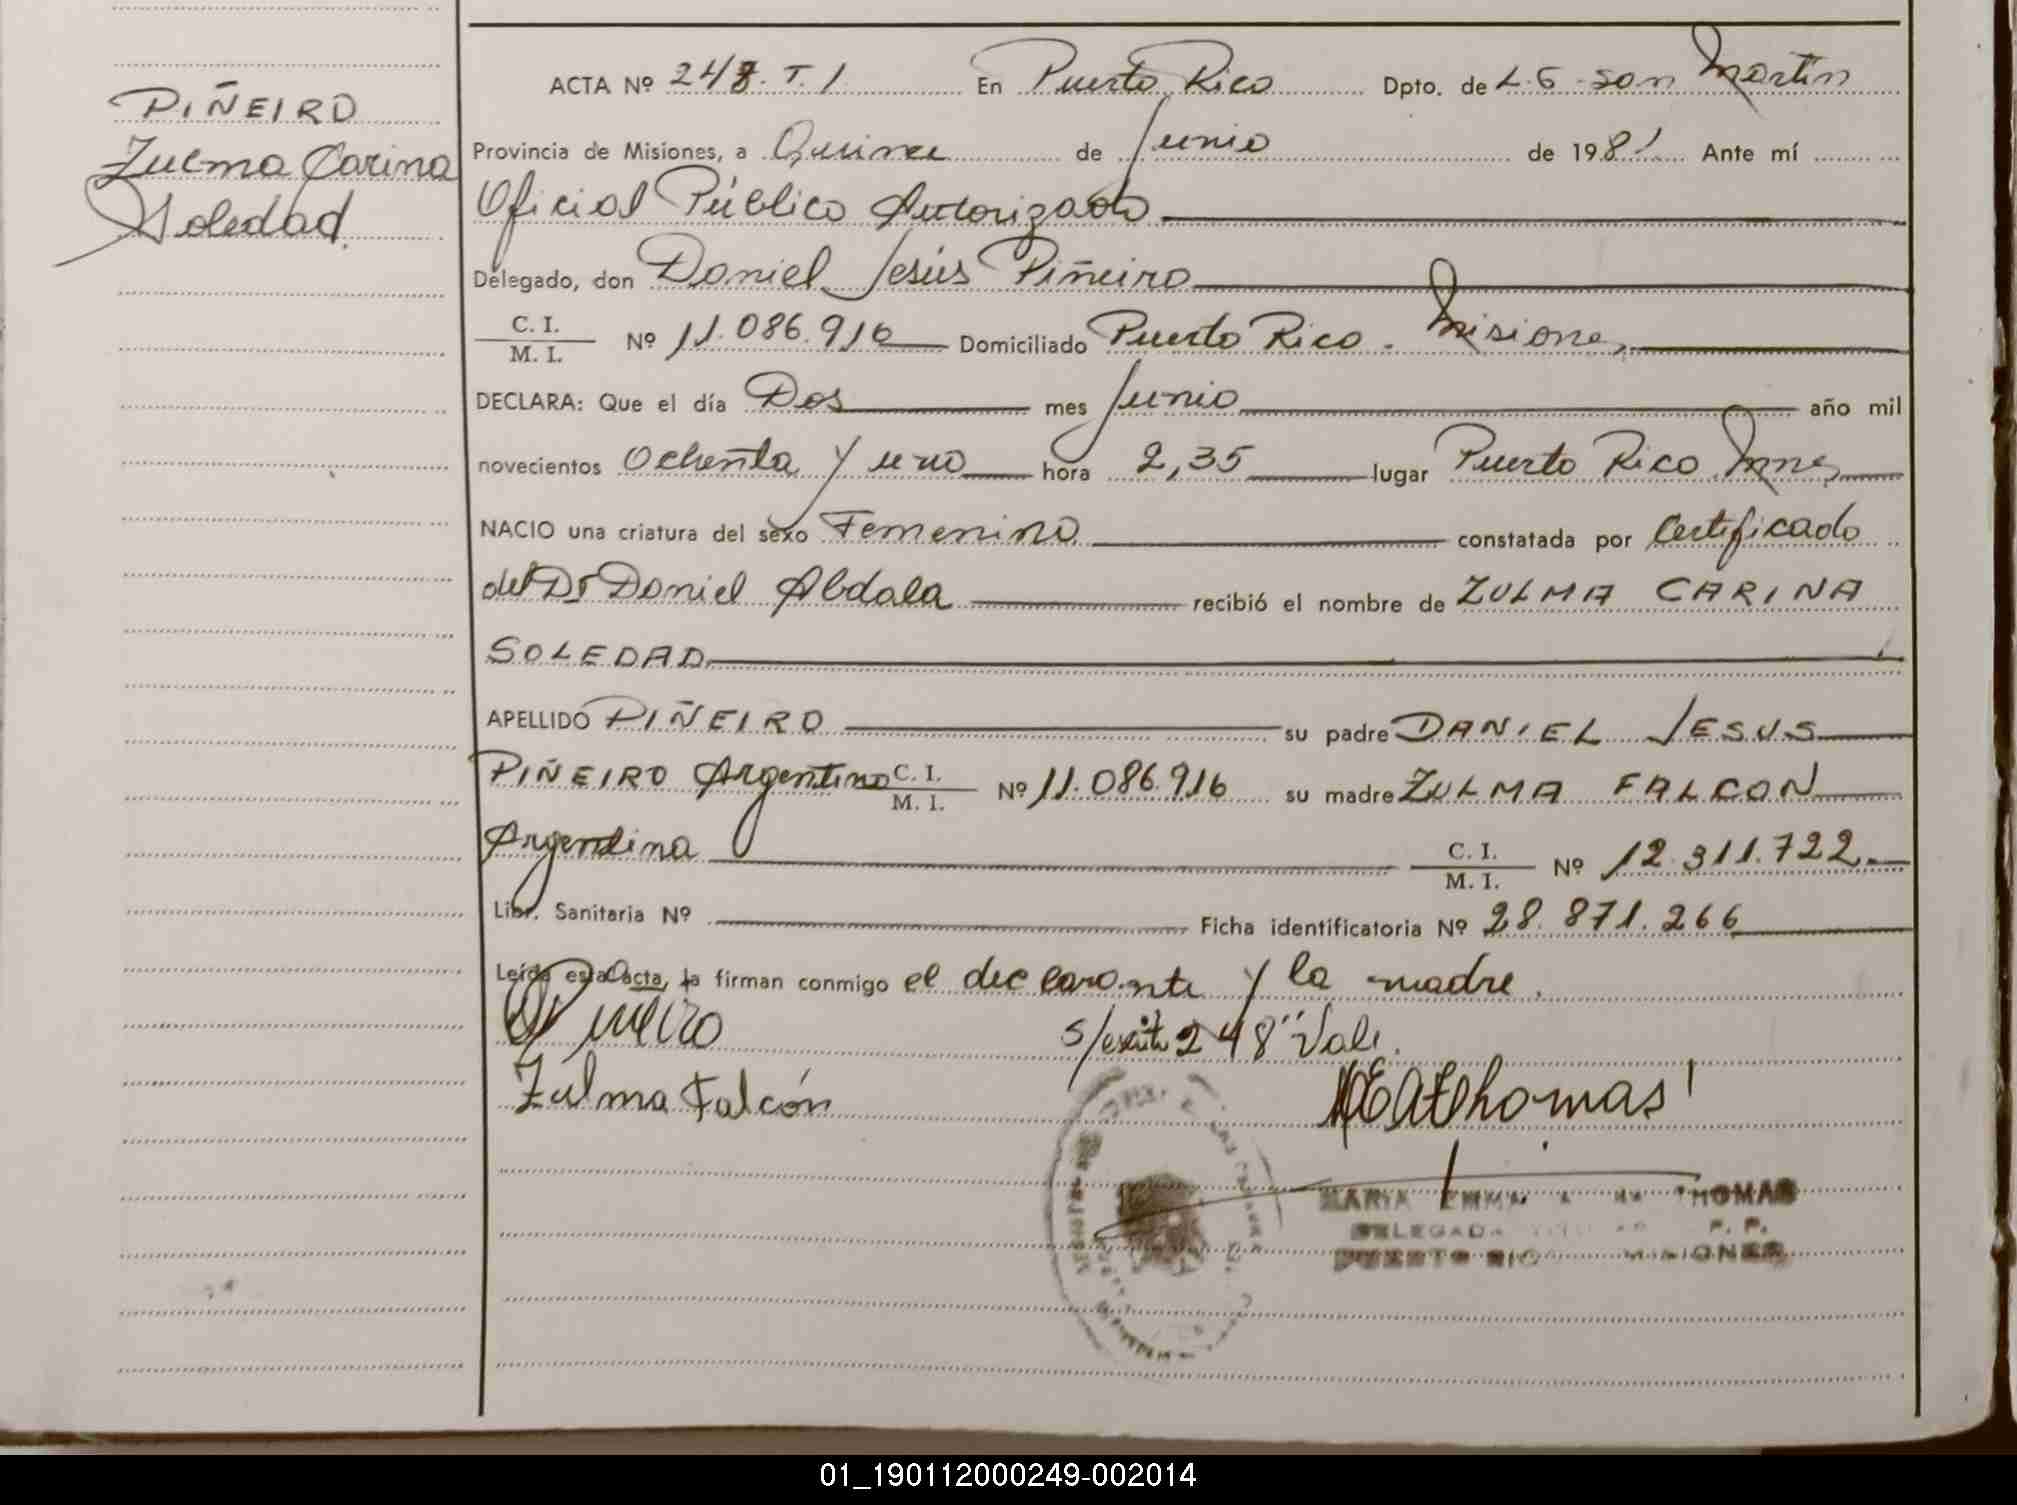 PIÑEIRO
Zulma Carina
Soledad.
ACTA Nº 248. T. 1 En Puerto Rico Dpto. de L. G. San Martín
Provincia de Misiones, a Quince de Junio de 1981 Ante mí
Oficial Público Autorizado
Delegado, don Daniel Jesús Piñeiro
C. I.
M. I. Nº 11.086.916 Domiciliado Puerto Rico - Misiones
DECLARA: Que el día Dos mes Junio año mil
novecientos Ochenta y uno hora 2,35 lugar Puerto Rico Mnes
NACIO una criatura del sexo Femenino constatada por Certificado
del Dr Daniel Abdala recibió el nombre de ZULMA CARINA
SOLEDAD
APELLIDO PIÑEIRO su padre DANIEL JESUS
PIÑEIRO Argentino C. I. M. I. Nº 11.086.916 su madre ZULMA FALCON
Argentina C. I. M. I. Nº 12.311.722
Libr. Sanitaria Nº Ficha identificatoria Nº 28.871.266
Leída esta acta, la firman conmigo el declarante y la madre.
Piñeiro s/escrito 248 "Vale.
Zulma Falcón Thomas
MARIA EMMA THOMAS
DELEGADA P. P.
PUERTO RICO MISIONES
01_190112000249-002014